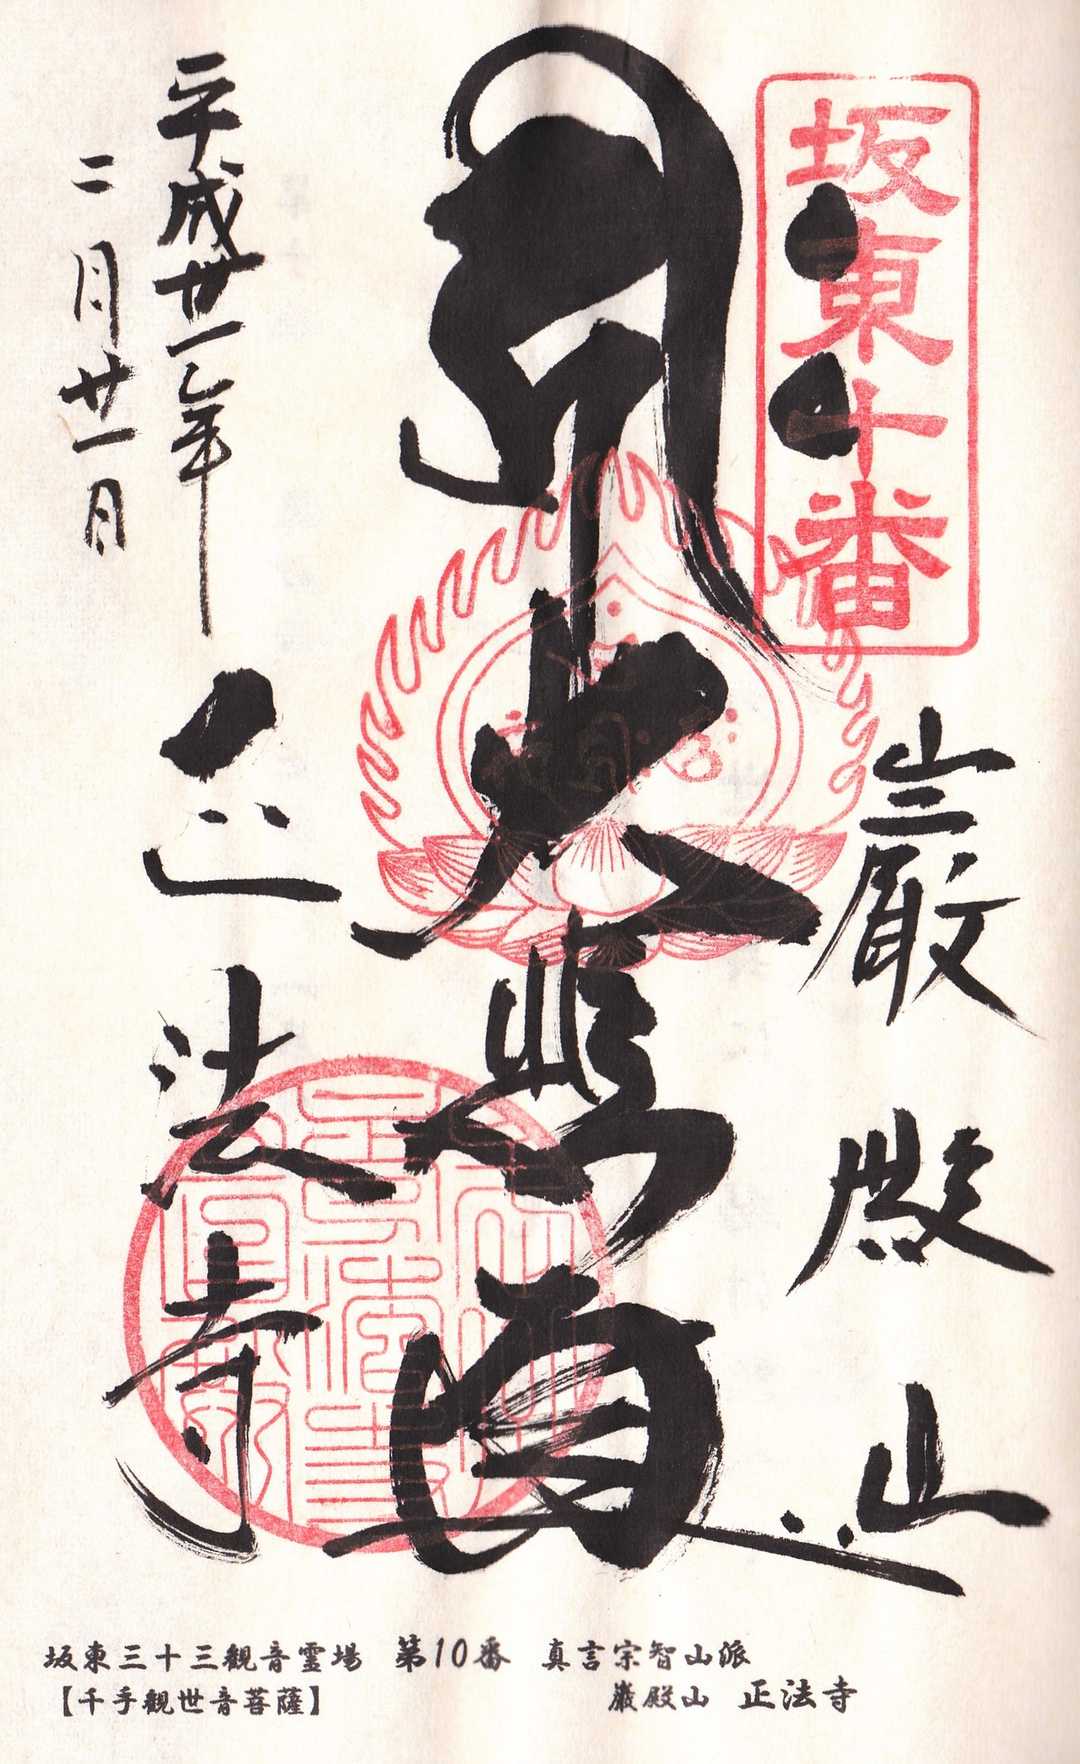 坂東十番
巖殿山
大悲
正法寺
平成丗一年
二月廿一日
坂東三十三観音霊場 第10番 真言宗智山派
【千手観世音菩薩】 巌殿山 正法寺